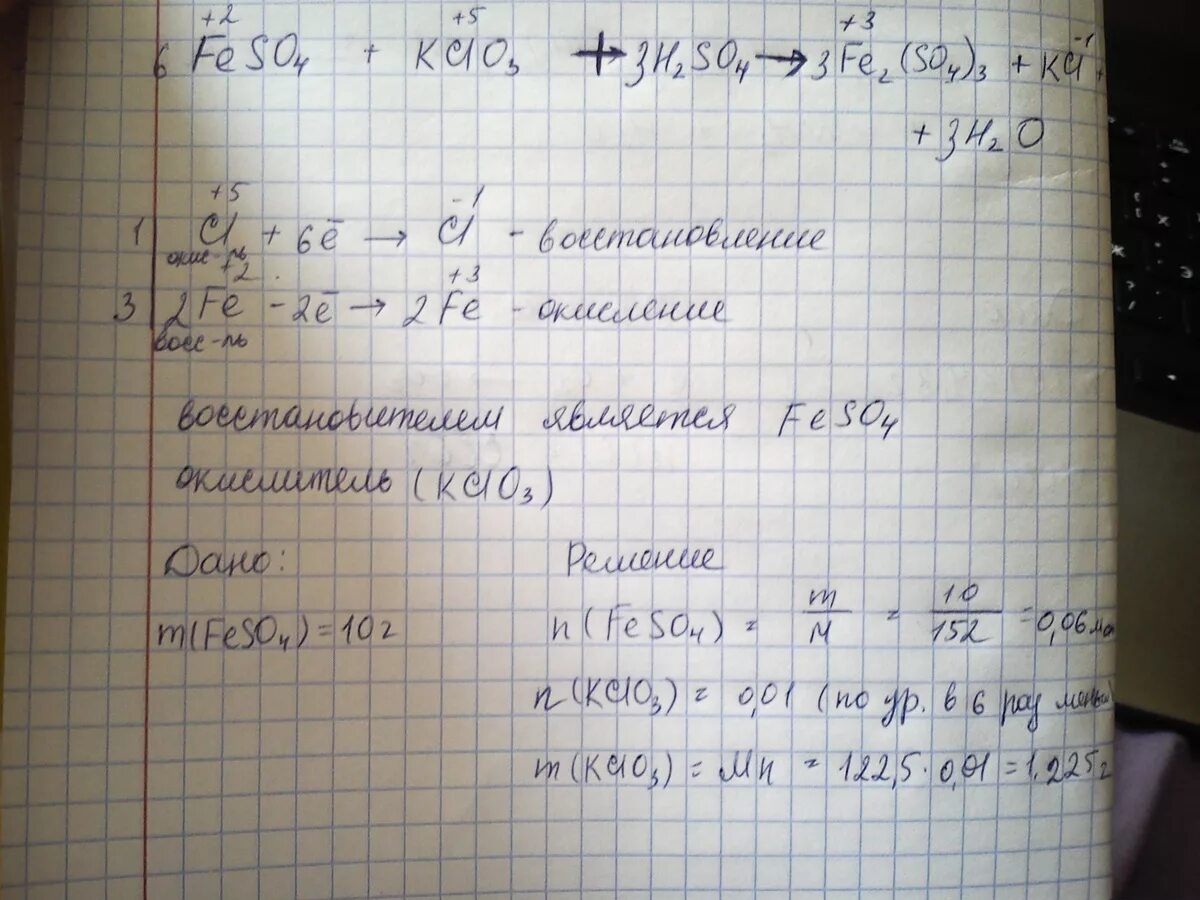 +2 +5 +3 -1
6 FeSO4 + KClO3 + 3H2SO4 → 3Fe2(SO4)3 + KCl +
+ 3H2O
+5 -1
1 Cl + 6ē → Cl - восстановление
окис-ль
+2 +3
3 2Fe - 2ē → 2Fe - окисление
восс-ль
восстановителем является FeSO4
окислитель (KClO3)
Дано: Решение
m(FeSO4) = 10г n(FeSO4) = m/M = 10/152 = 0,06 мо
n(KClO3) = 0,01 (по ур. в 6 раз меньш
m(KClO3) = Mn = 122,5 · 0,01 = 1,225г